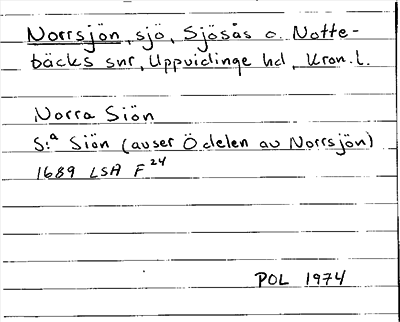 Norrsjön, sjö, Sjösås o. Notte-
bäcks snr, Uppvidinge hd, Kron. l.
Norra Siön
S:a Siön (avser Ö delen av Norrsjön)
1689 LSA F 24
POL 1974